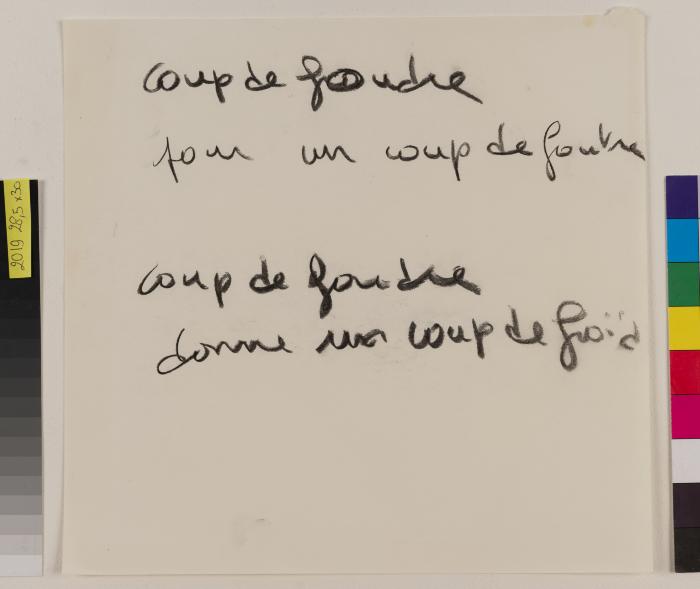 coup de foudre
pour un coup de foutre
coup de foudre
donne un coup de froïd
2019 28,5 x 30